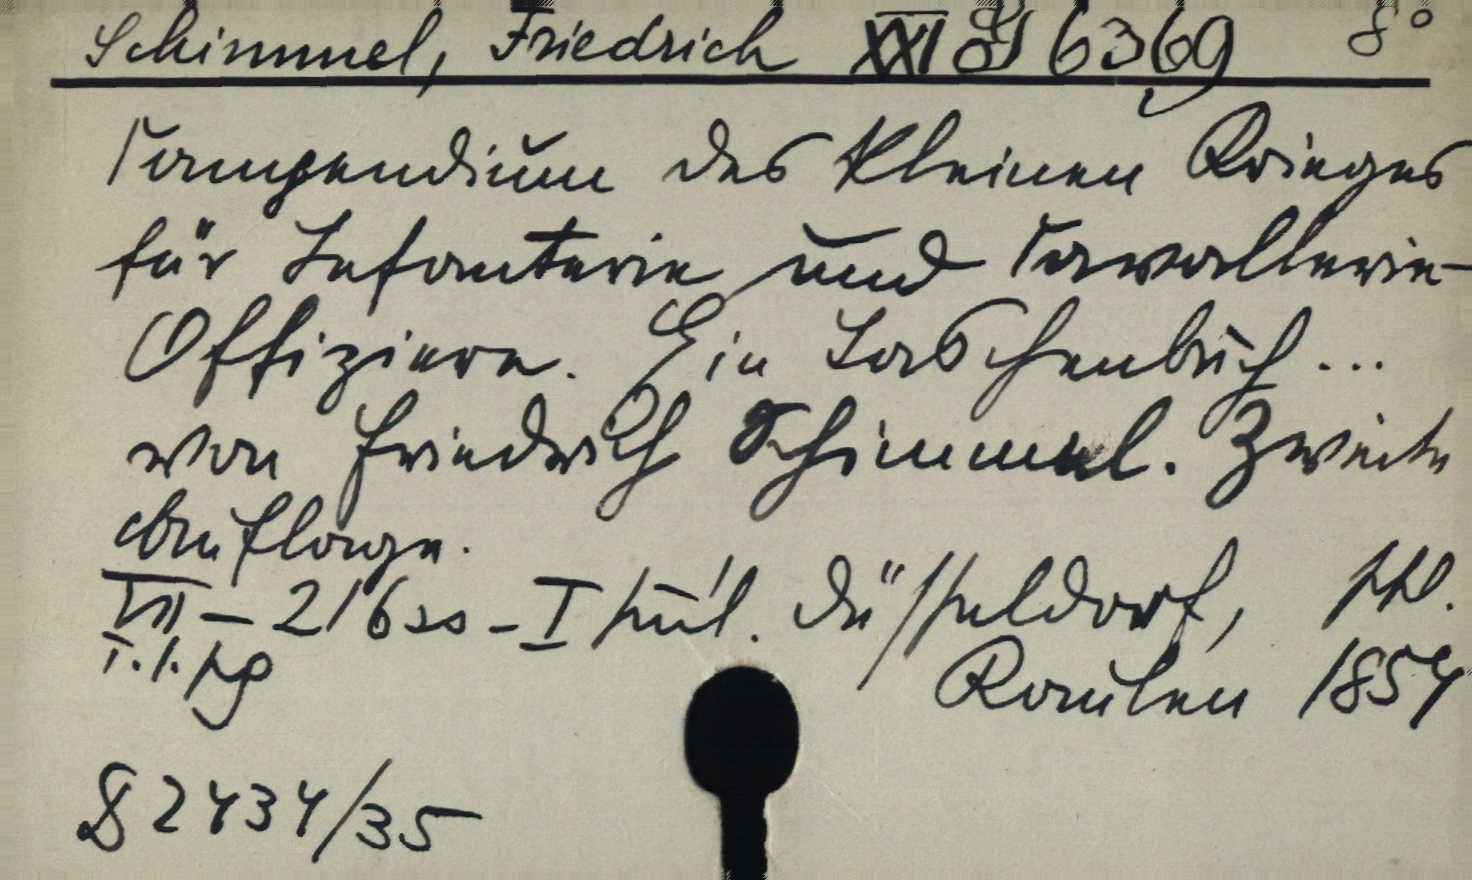 Schimmel, Friedrich XXI 6369 8°
Compendium des kleinen Krieges
für Infanterie und Cavallerie-
Offiziere. Ein Taschenbuch ...
von Friedrich Schimmel. Zweite
Auflage.
VII - 216 SS - I Düsseldorf,
Kaulen 1854
2434/35